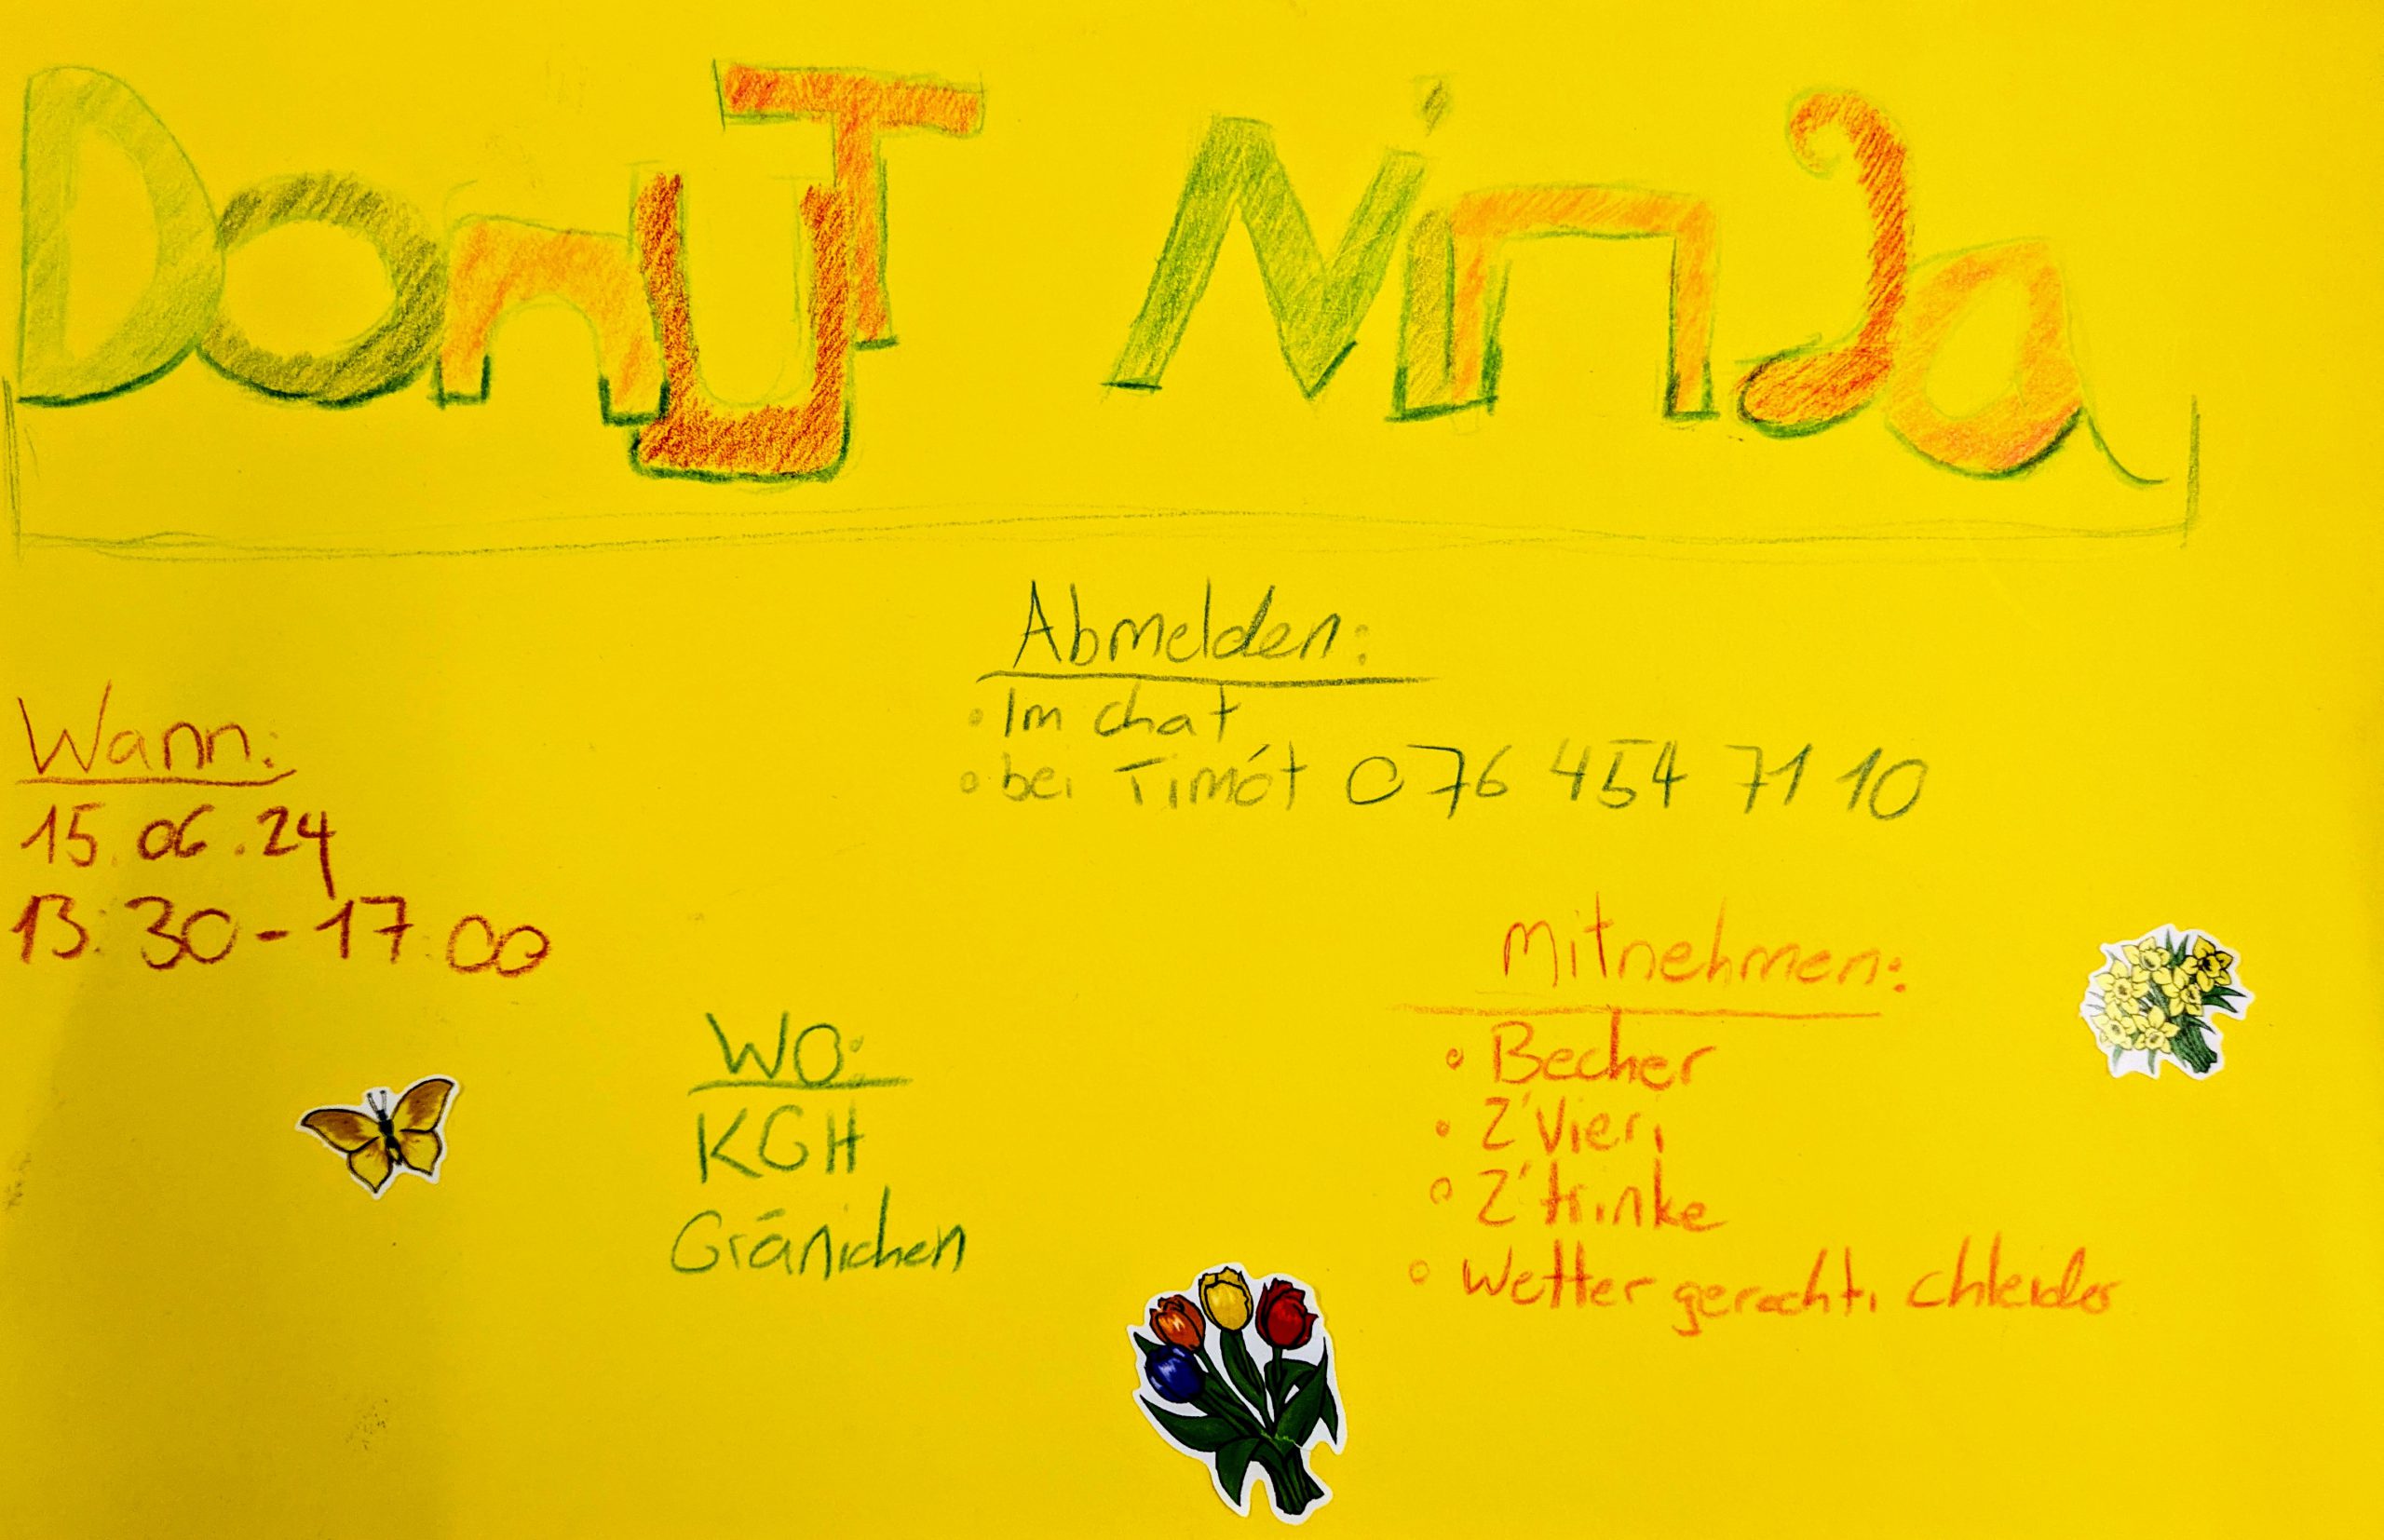 Donut Ninja
Abmelden:
• Im chat
• bei Timót 076 454 71 10
Wann:
15.06.24
13:30-17:00
Wo:
KGH
Gränichen
Mitnehmen:
• Becher
• Z'Vieri
• Z'trinke
• Wetter gerechti chleider